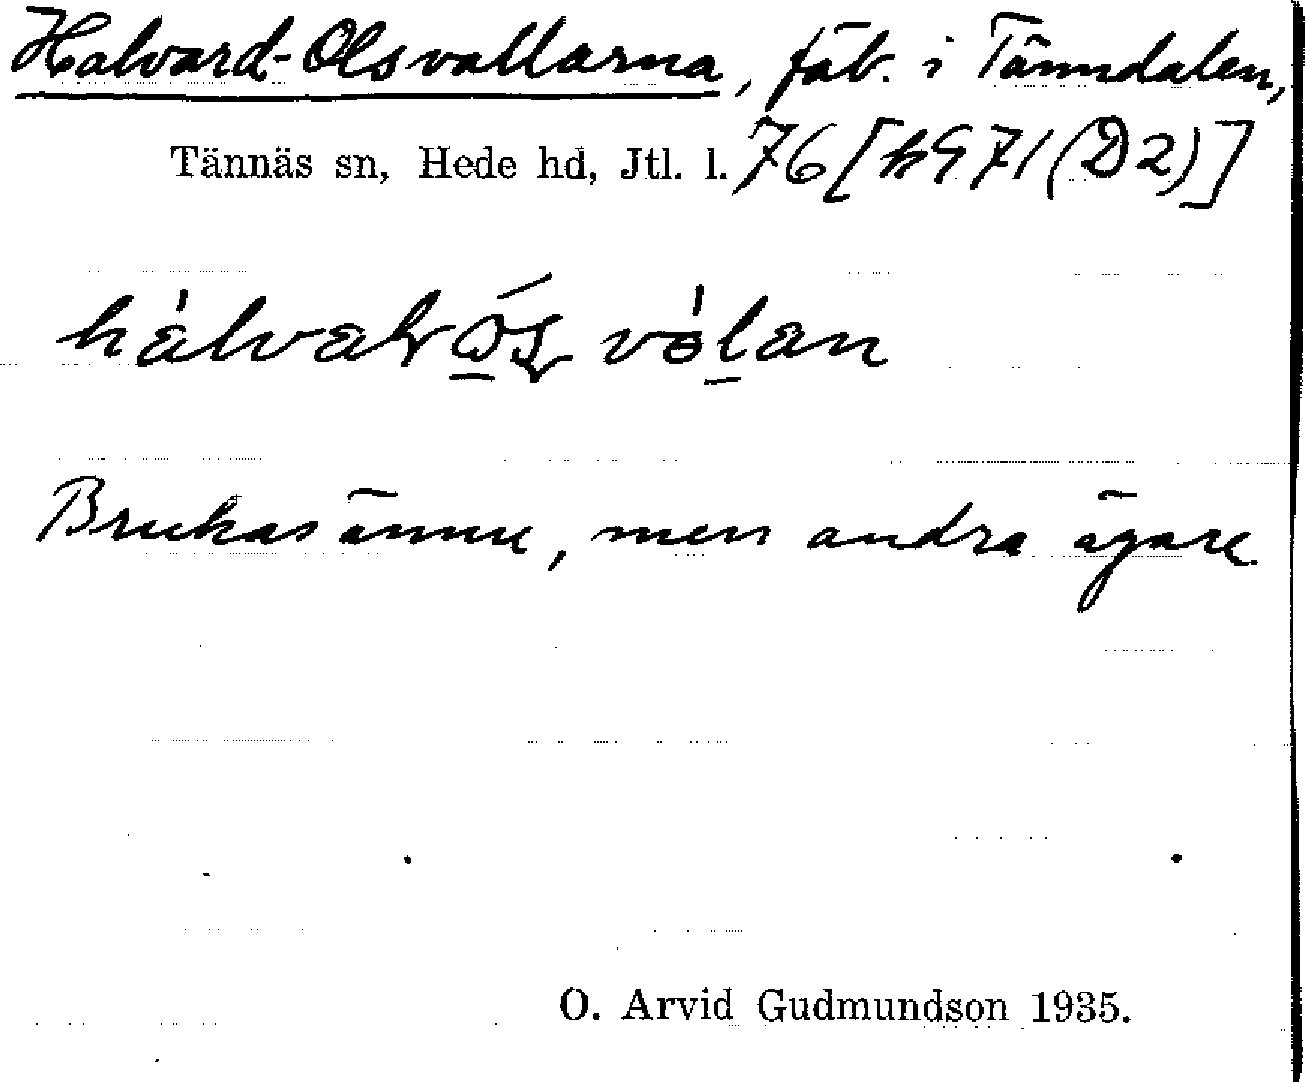 Halvard-Olsvallarna, fäb. i Tänndalen,
Tännäs sn, Hede hd, Jtl. l. 76 [h971(D2)]
Brukas ännu, men andra ägare
O. Arvid Gudmundson 1935.